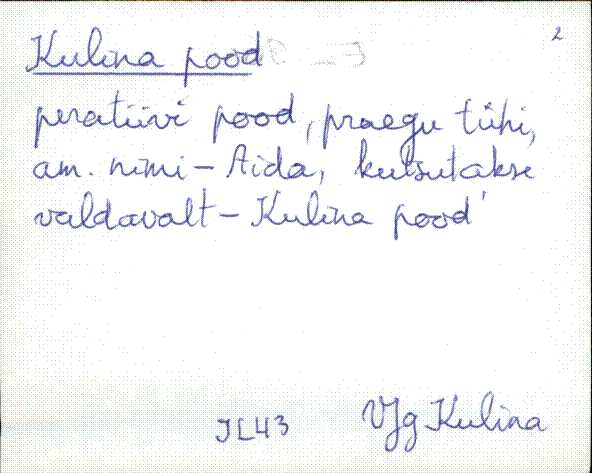 2
Kulina pood
peratiivi pood, praegu tühi,
am. nimi - Aida, kutsutakse
valdavalt - Kulina pood'
JL43 VJg Kulina